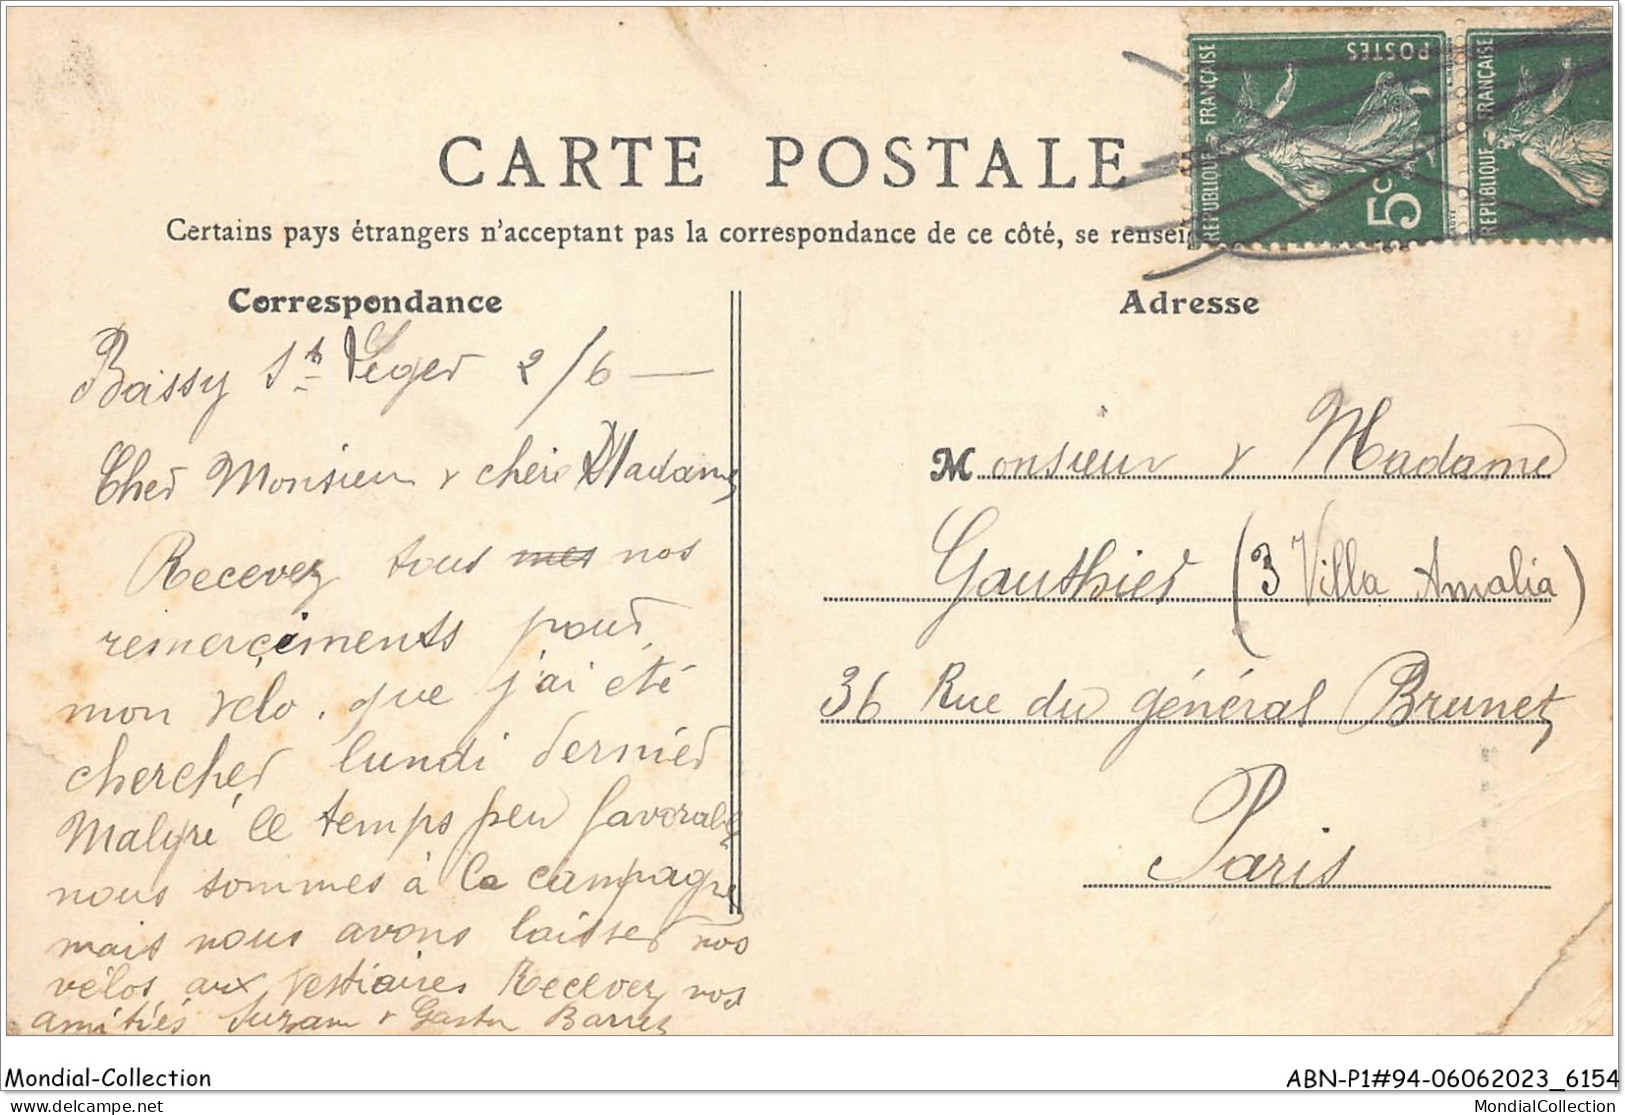 CARTE POSTALE
Certains pays étrangers n'acceptant pas la correspondance de ce côté, se rensei
RÉPUBLIQUE FRANÇAISE
POSTES
5c
RÉPUBLIQUE FRANÇAISE
Correspondance
Boissy St Léger 2/6 —
Cher Monsieur & chère Madame
Recevez tous mes nos
remerciments pour
mon vélo, que j'ai été
chercher lundi dernier
Malgré le temps peu favorable
nous sommes à la campagne
mais nous avons laisser nos
vélos aux vestiaires Recevez nos
amitiés Suzann & Gaston
Adresse
Monsieur & Madame
Gauthier (3 Villa Amalia)
36 Rue du général Brunet
Paris
Mondial-Collection
ABN-P1#94-06062023_6154
delcampe.net
MondialCollection